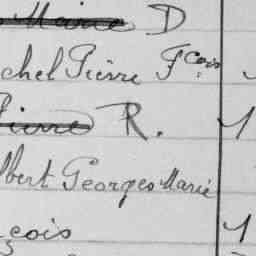 Marie D
chel Pierre Fçois
Pierre R.
lbert Georges Marie
çois